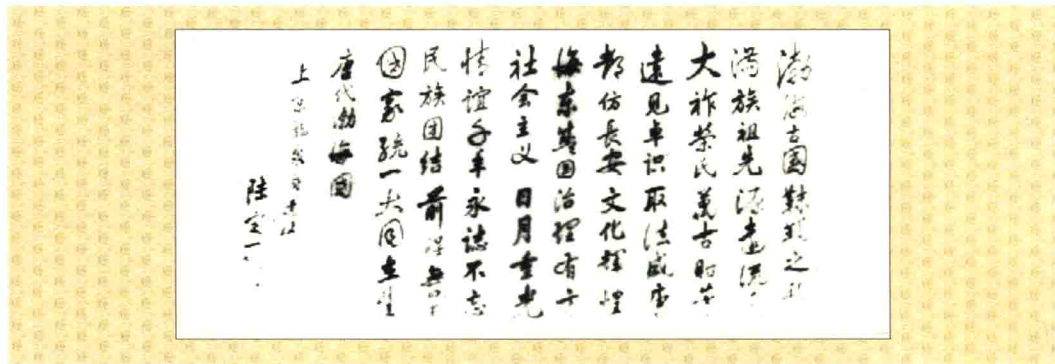 渤海古国靺鞨之
满族祖先源远流
大祚荣氏万古
远见卓识取法盛唐
都仿长安文化辉煌
海东盛国治理有方
社会主义日月重光
情谊千年永志不忘
民族团结前程无
国家统一大同在望
唐代渤海国
上京
陆定一